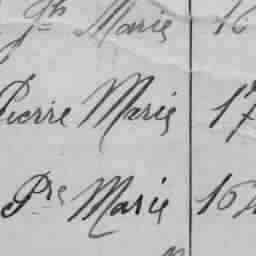 Jh Marie 16
Pierre Marie 17
Pre Marie 162